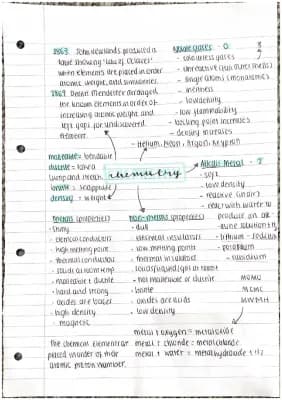 1863. John Newlands produced a
table showing 'law of octaves'
where elements are placed in order
atomic weight, and similarities.
1869. Dmitri mendeleev arranged
the known elements in order of
increasing atomic weight and
left gaps for undiscovered
element.
Noble gases - 0
- colourless gases
- unreactive (full outer shells)
- single atoms (monatomic)
- inertness
- low density
- low flammability
- boiling point increases
- density increases
- Helium, Neon, Argon, Krypton
malleable = bendable
ductile =
brittle = snappable
density = weight
chemistry
Alkali Metal -
- soft
- low density
- reactive (in air)
- react with water to
produce an alk-
aline solution
- lithium - sodium
- potassium
- rubidium
metals (properties)
- shiny
- electrical conductors
- high melting point
- thermal conductors
- solids at room temp
- malleable + ductile
- hard and strong
- oxides are bases
- high density
- magnetic
non-metals (properties)
- dull
- electrical insulators
- low melting points
- thermal insulator
- solids/liquid/gas at room t
- not malleable or ductile
- brittle
- oxides are acids
- low density
MOMO
MCMC
MWMH
metal + oxygen = metal oxide
metal + chloride = metal chloride
metal + water = metal hydroxide +
The chemical elements are
placed in order of their
atomic proton number.